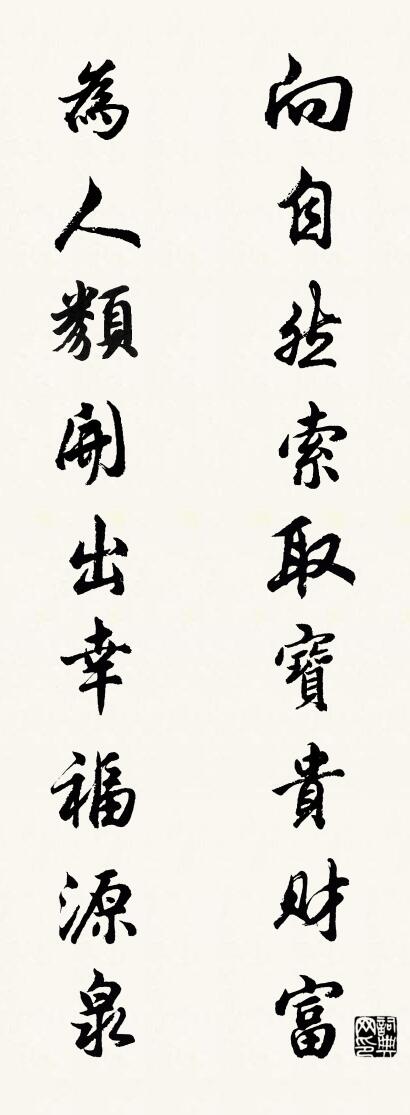 向自然索取寶貴財富
為人類開出幸福源泉
詞典網印